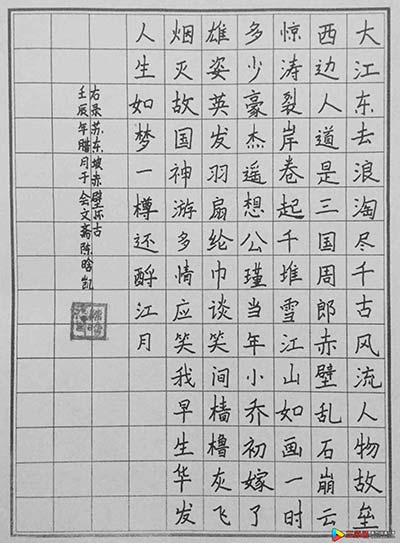 大江东去浪淘尽千古风流人物故垒
西边人道是三国周郎赤壁乱石崩云
惊涛裂岸卷起千堆雪江山如画一时
多少豪杰遥想公瑾当年小乔初嫁了
雄姿英发羽扇纶巾谈笑间樯橹灰飞
烟灭故国神游多情应笑我早生华发
人生如梦一樽还酹江月
右录苏东坡赤壁怀古
壬辰年腊月于会文斋陈晗凯